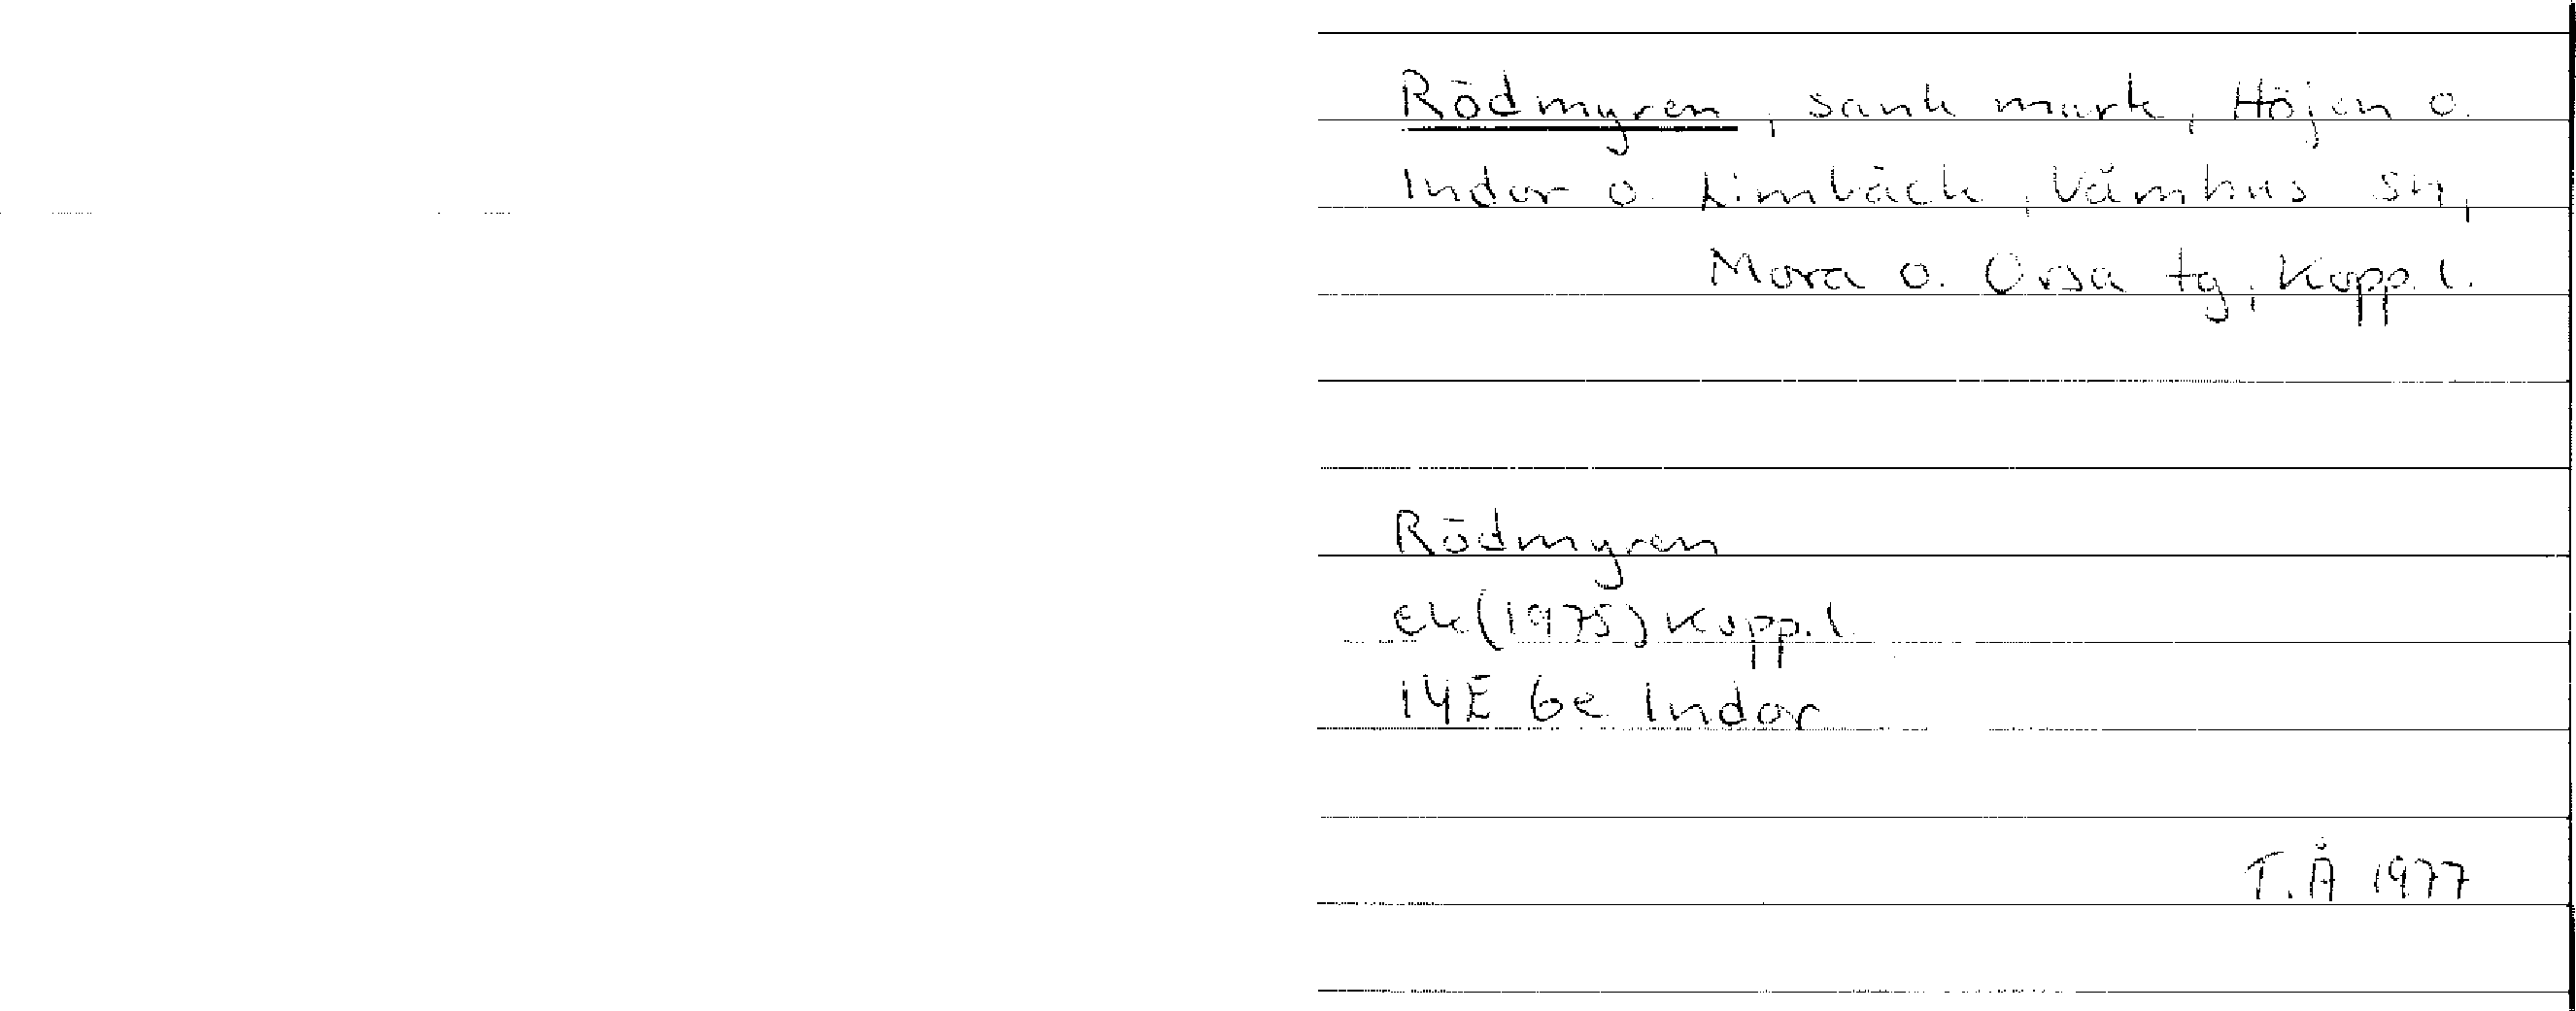 Rödmyren, sank mark, Höjen o.
Indor o. Limbäck, Våmhus sn,
Mora o. Orsa tg, Kopp. l.
Rödmyren
ek (1975) Kopp. l.
14E 6e Indor
T.Å 1977